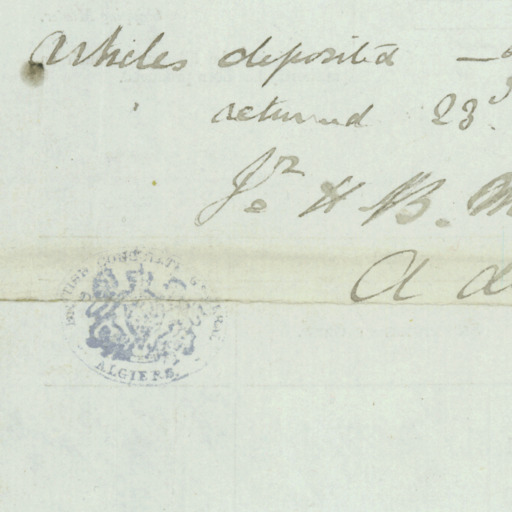 Articles deposited —
returned 23
Jr H. B.
BRITISH CONSULATE GENERAL
ALGIERS.